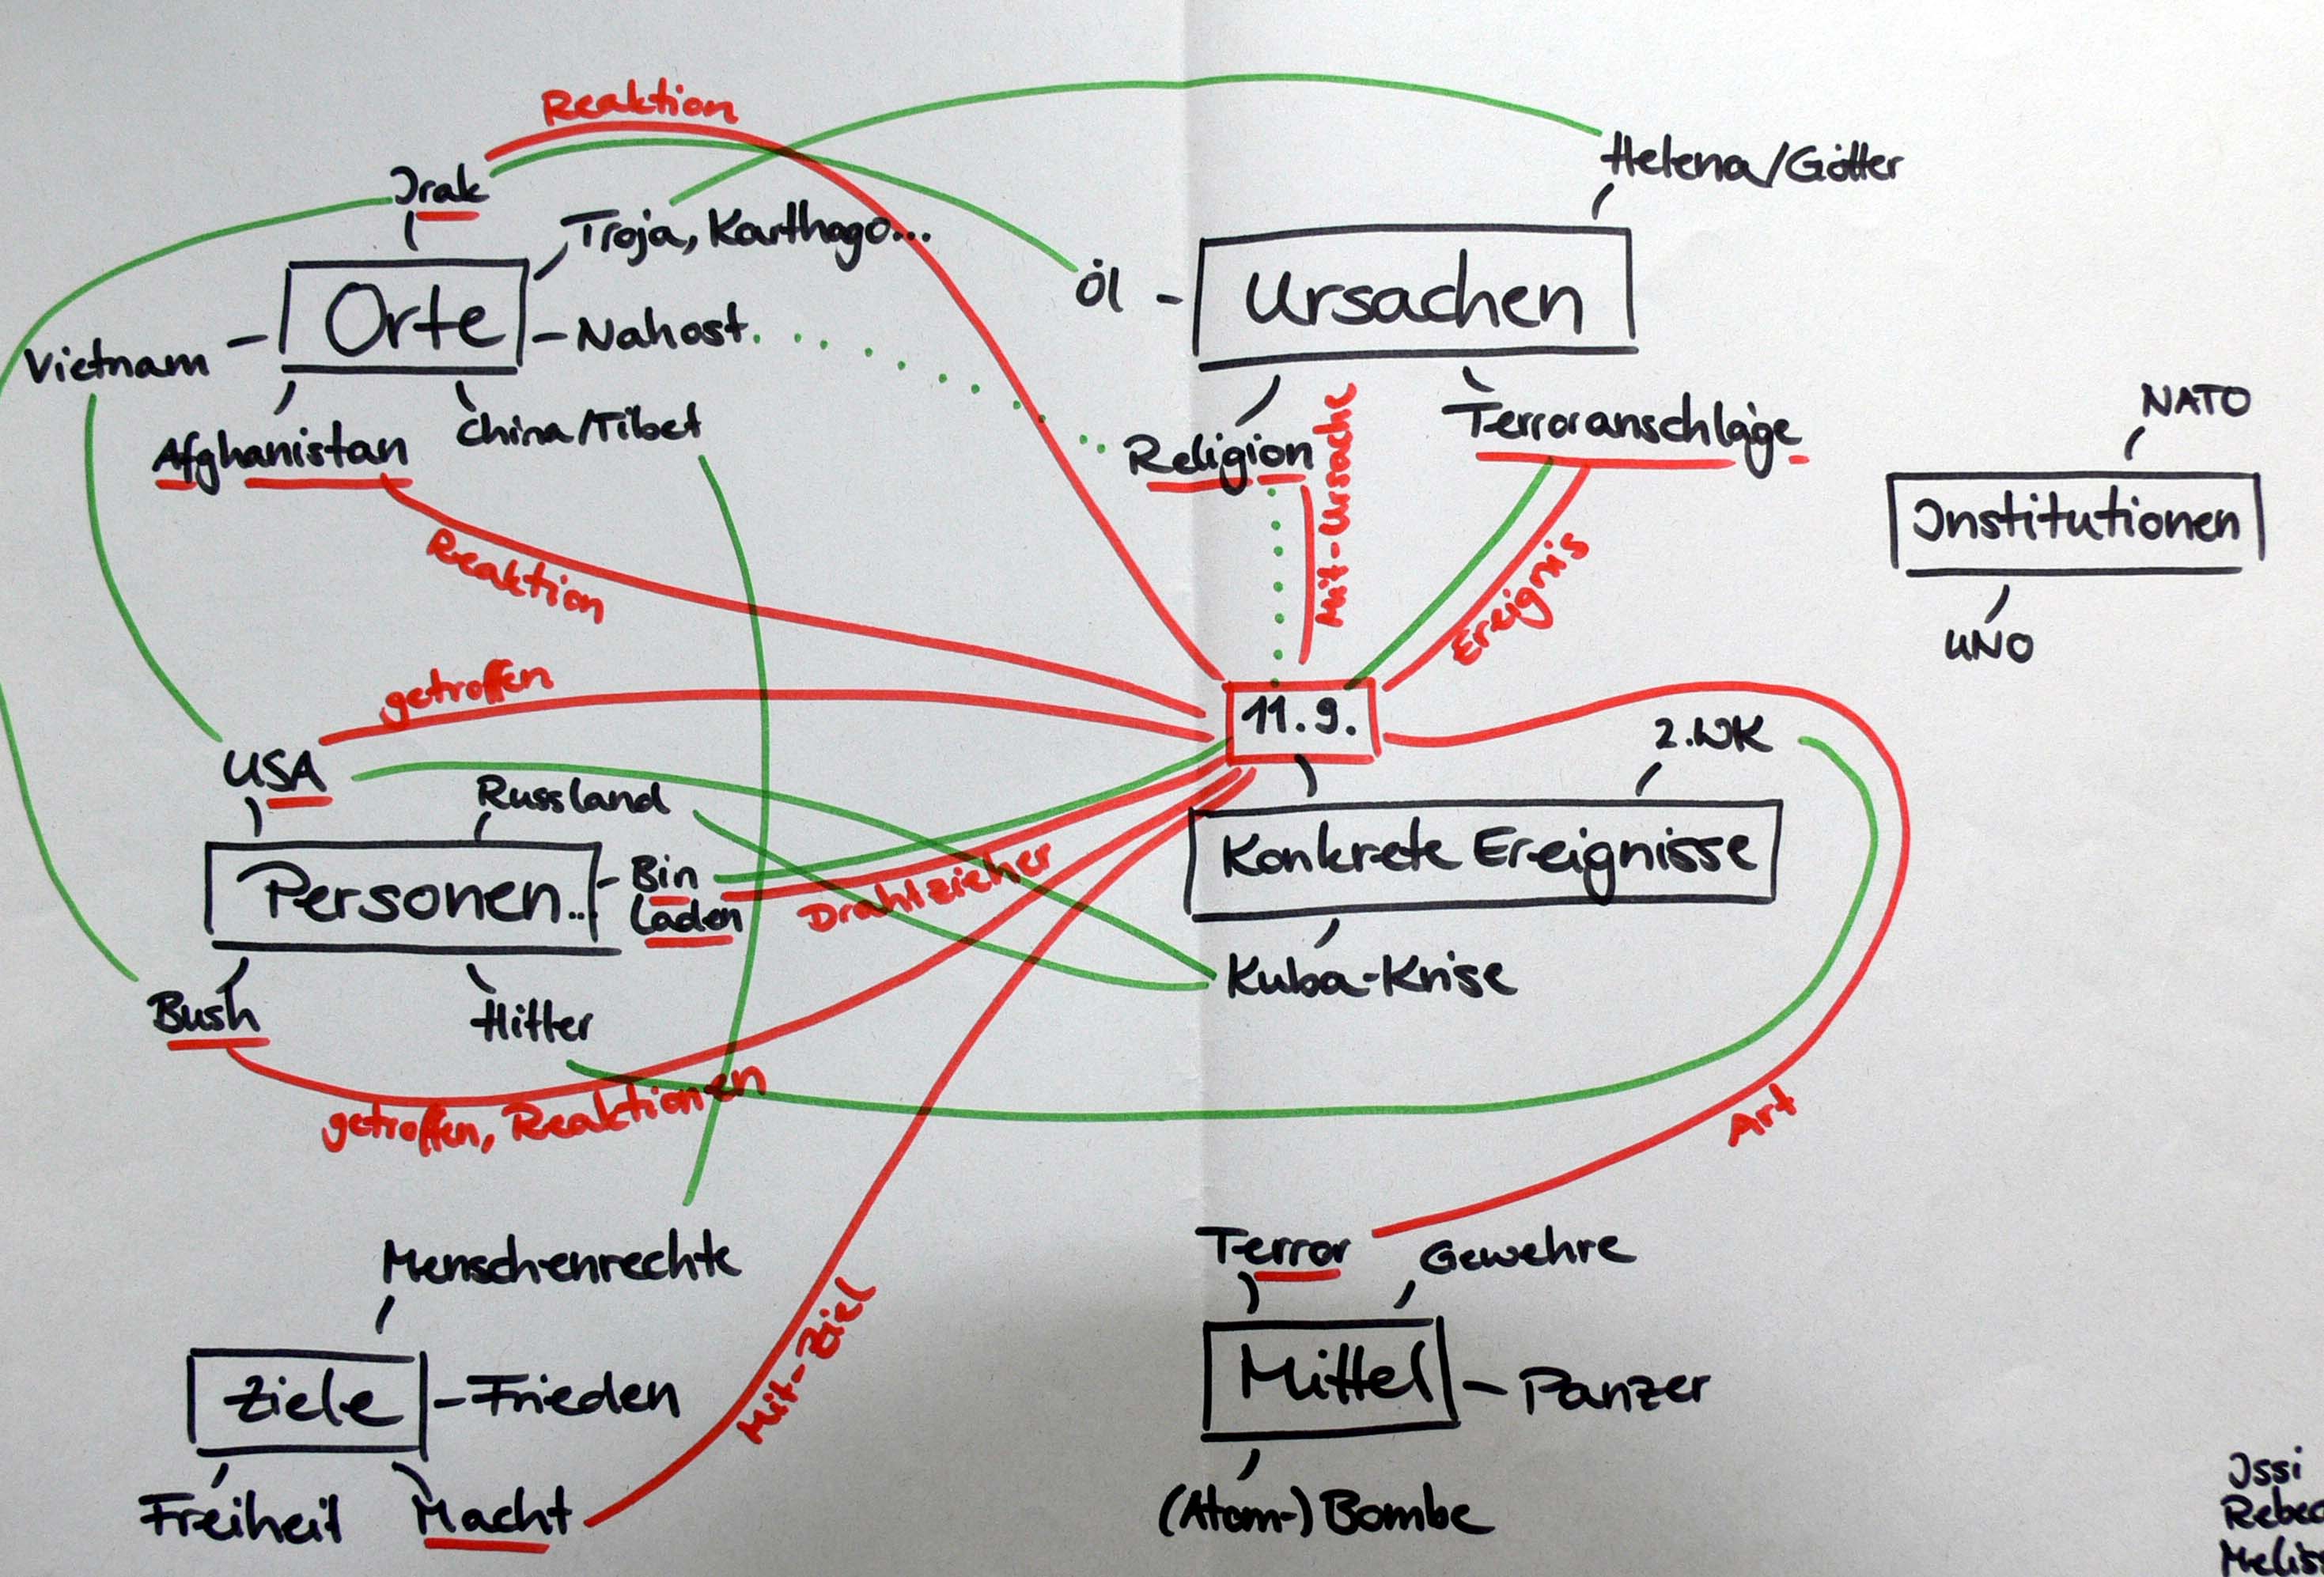 Reaktion
Helena/Götter
Irak
Troja, Karthago...
Öl
Ursachen
Orte
Nahost
Vietnam
NATO
China/Tibet
Terroranschläge
Afghanistan
Religion
Mit-Ursache
Institutionen
Reaktion
Ereignis
UNO
getroffen
11.9.
2.WK
USA
Russland
Konkrete Ereignisse
Bin
Laden
Personen...
Drahtzieher
Kuba-Krise
Bush
Hitler
getroffen, Reaktionen
Art
Menschenrechte
Terror
Gewehre
Mit-Ziel
Ziele
Frieden
Mittel
Panzer
Freiheit
Macht
(Atom-) Bombe
Issi